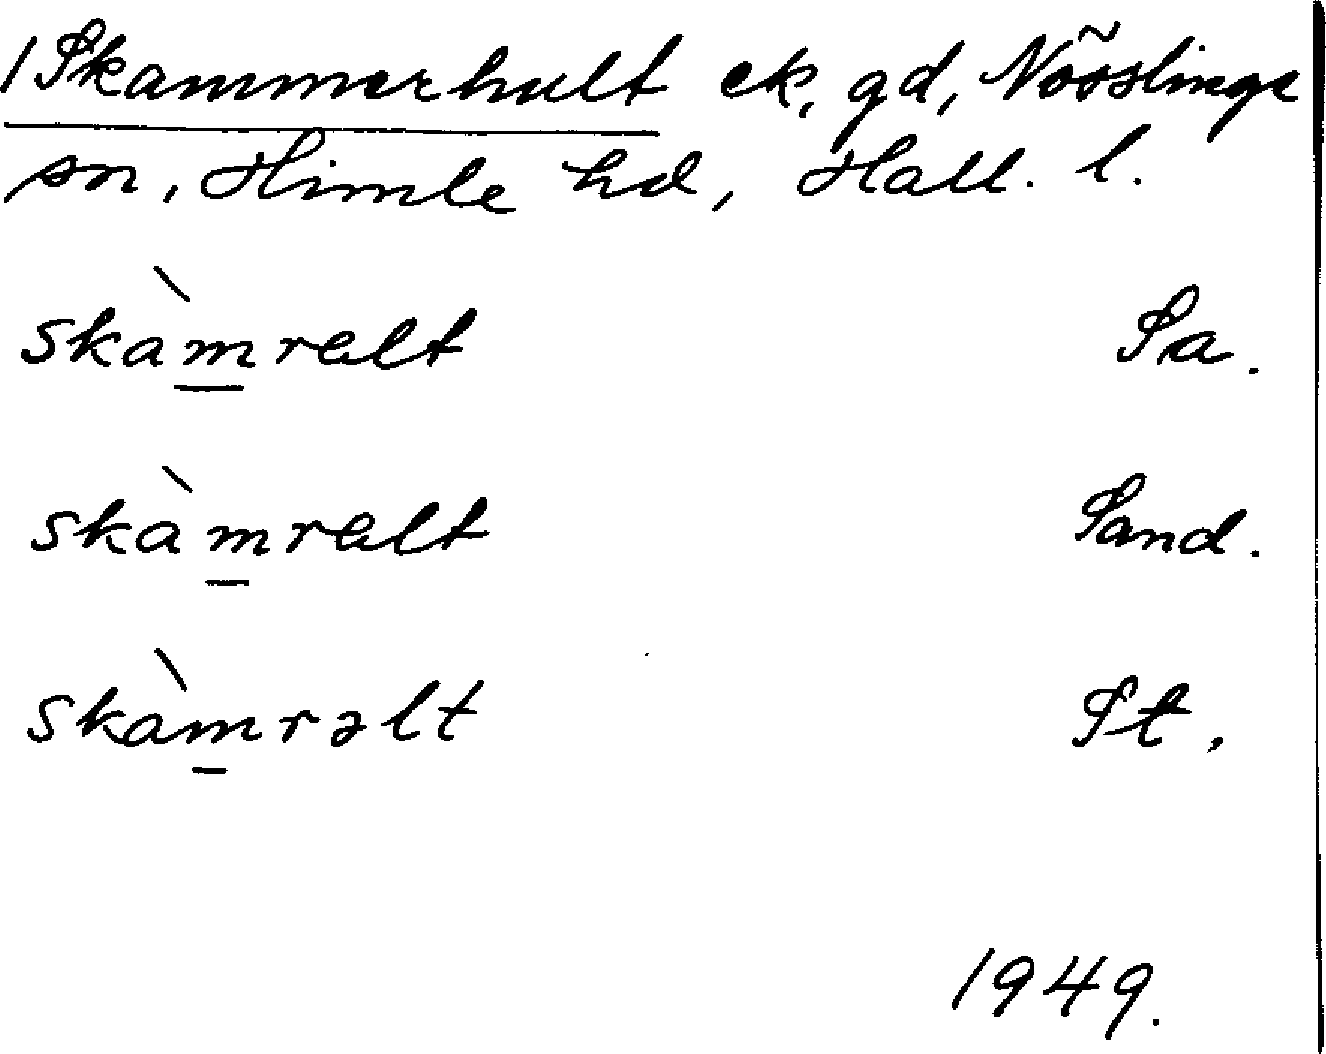 1 Skammerhult ek. gd, Nösslinge
sn, Himle hd, Hall. l.
skàmralt Sa.
skàmralt Sand.
skàmrəlt St.
1949.